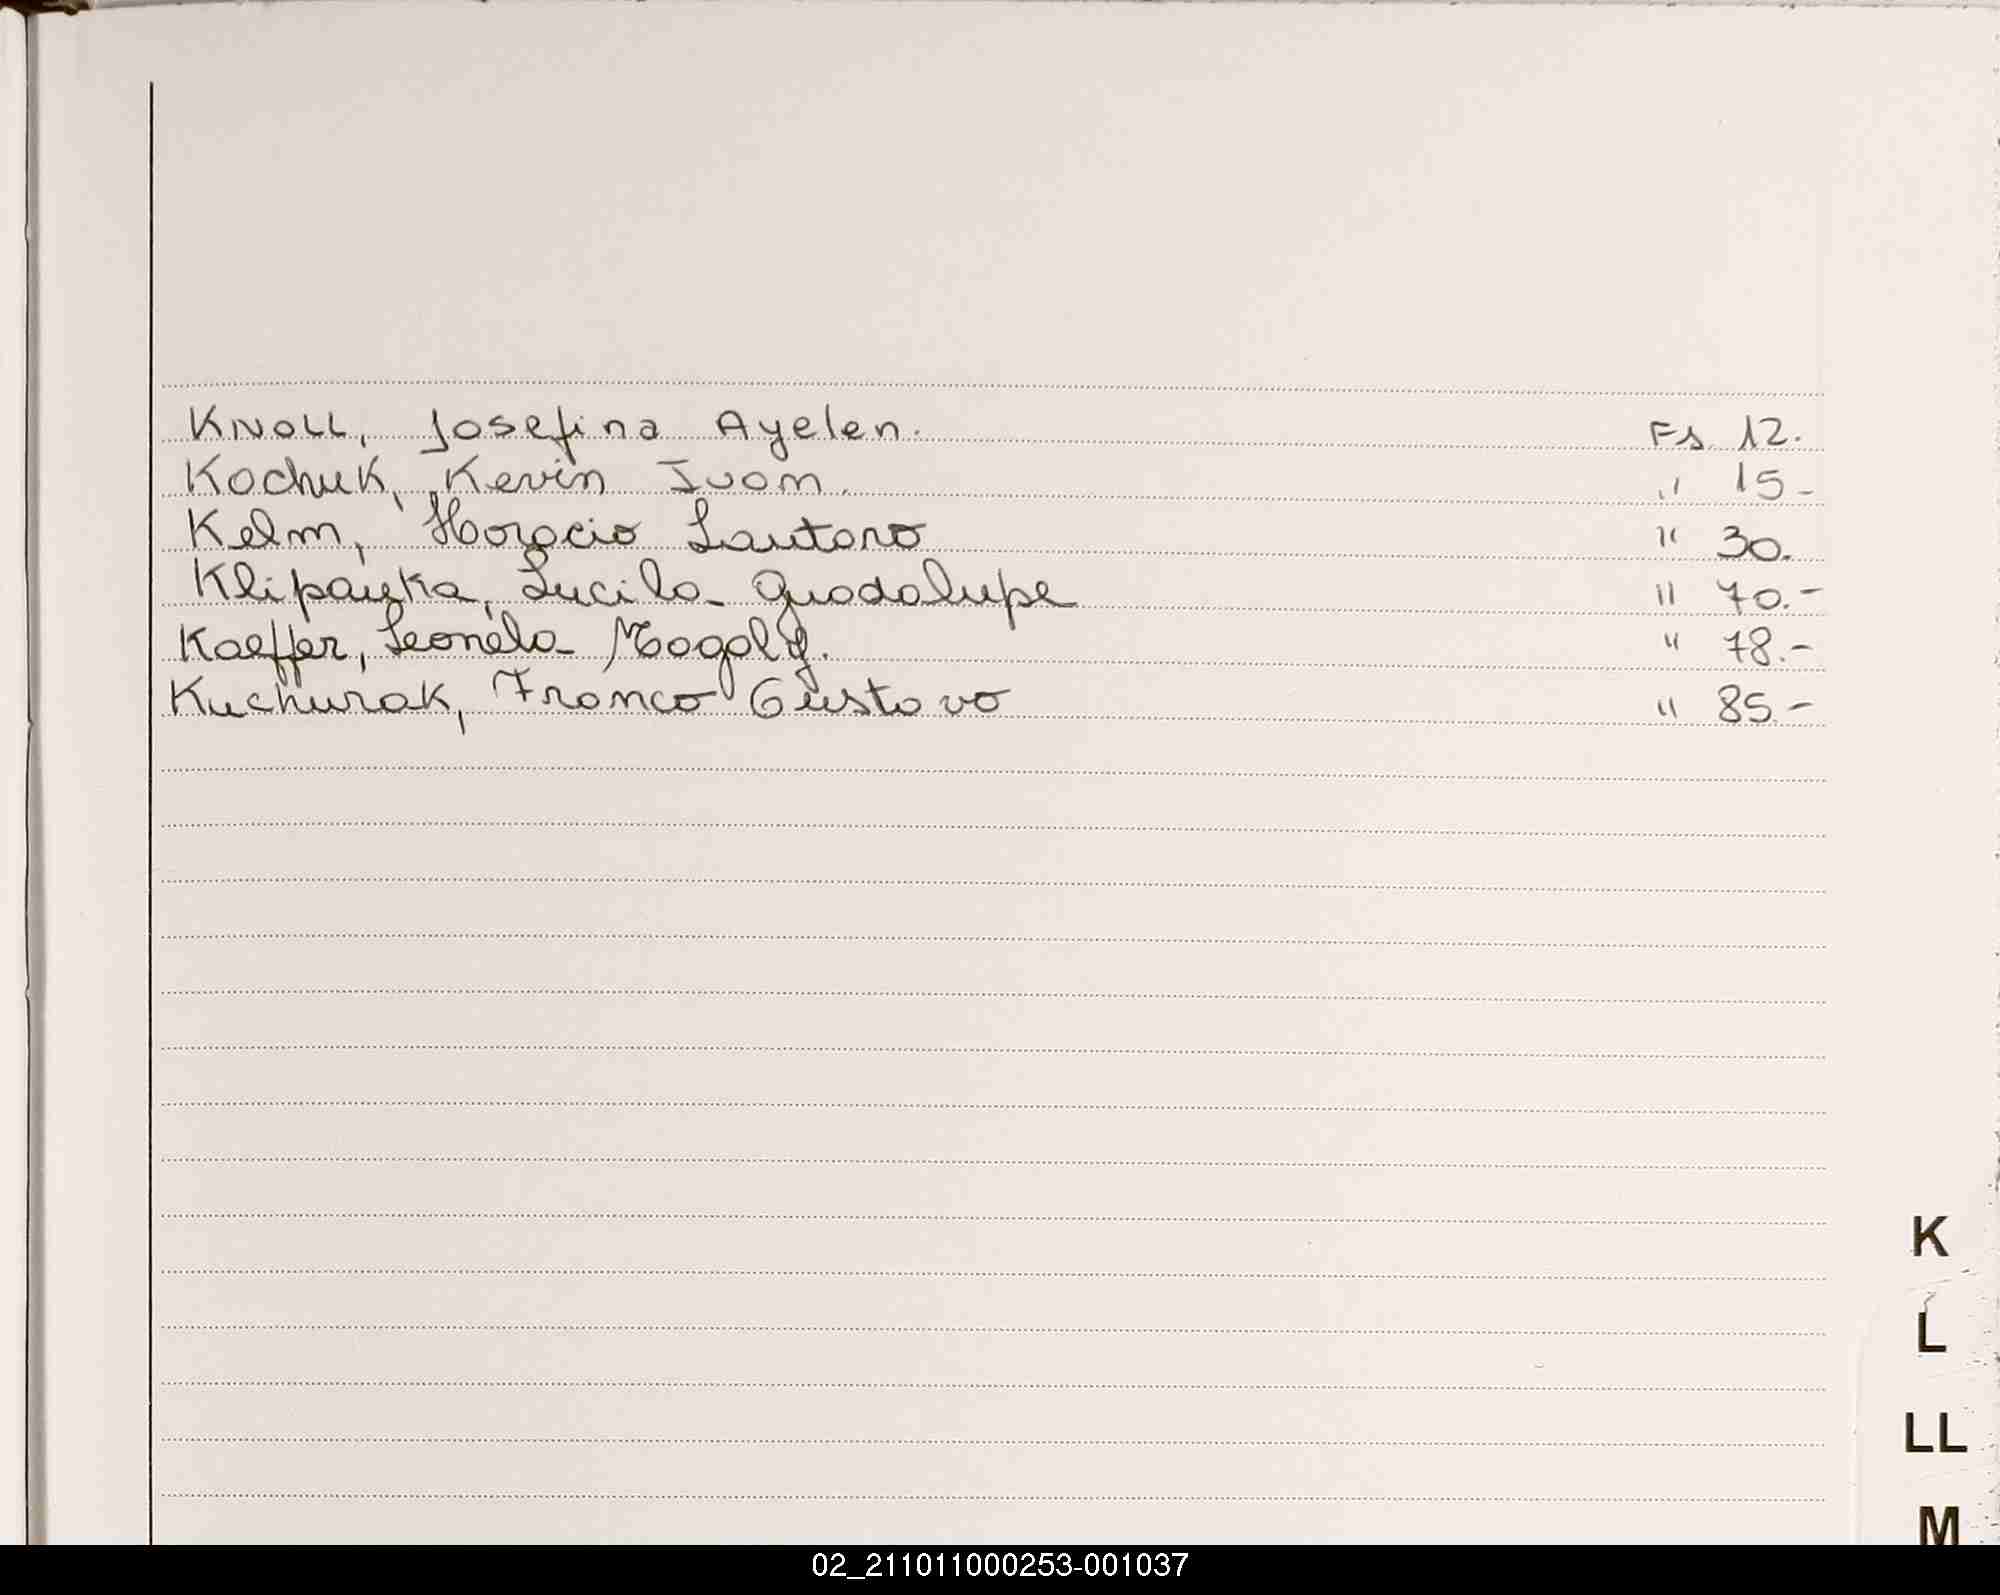 Knoll, Josefina Ayelen. Fs 12.
Kochuk, Kevin Ivan. " 15-
Kelm, Horacio Lautaro " 30.
Klipauka, Lucila Guadalupe " 70.-
Kaeffer, Leonela Magaly. " 78.-
Kuchurak, Franco Gustavo " 85-
K
L
LL
M
02_211011000253-001037